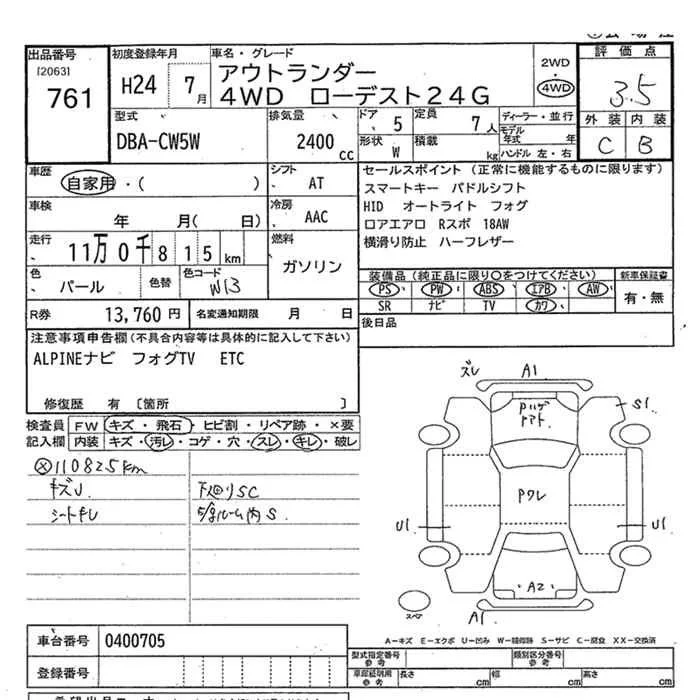 出品番号
[2063]
761
初度登録年月
H24 7月
車名・グレード
アウトランダー
4WD ローデスト24G
2WD
・
4WD
評価点
3.5
外装 内装
C B
型式
DBA-CW5W
排気量
2400 cc
ドア
5
定員
7人
形状
W
積載
kg
ディーラー・並行
モデル年式 年
ハンドル 左・右
車歴
自家用・( )
シフト
AT
車検
年 月( 日)
冷房
AAC
走行
11万0千815km
燃料
ガソリン
色
パール
色替
色コード
W13
セールスポイント (正常に機能するものに限ります)
スマートキー パドルシフト
HID オートライト フォグ
ロアエアロ Rスポ 18AW
横滑り防止 ハーフレザー
装備品(純正品に限り○をつけてください)
PS・ PW・ ABS・ IAB・ AW・
SR ナビ TV カワ
新車保証書
有・無
R券 13,760円
名変通知期限 月 日
後日品
注意事項申告欄(不具合内容等は具体的に記入して下さい)
ALPINEナビ フォグTV ETC
修復歴 有 [箇所 ]
検査員記入欄
FW キズ・飛石・ヒビ割・リペア跡・×要
内装 キズ・汚レ・コゲ・穴・スレ・キレ・破レ
110825km
キズJ
下廻りSC
ズレ A1
S1
Pハゲ
Pワレ
U1
U1
A2
A1
スペア
A-キズ E-エクボ U-凹み W-補修跡 S-サビ C-腐食 XX-交換済
車台番号 0400705
登録番号
型式指定番号 参考
類別区分番号 参考
車庫証明用 参考 長さ cm 幅 cm 高さ cm